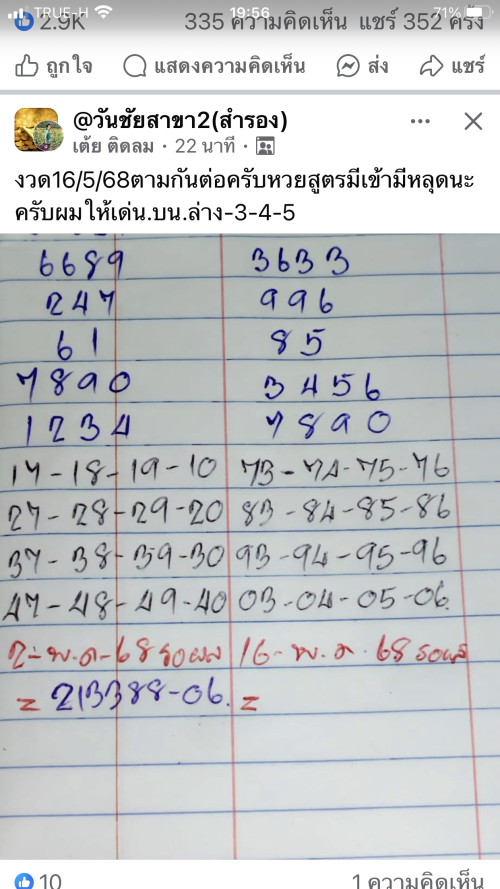 TRUE-H 19:56 71%
2.9K 335 ความคิดเห็น แชร์ 352 ครั้ง
ถูกใจ แสดงความคิดเห็น ส่ง แชร์
@วันชัยสาขา2(สำรอง)
เต้ย ติดลม · 22 นาที ·
งวด16/5/68ตามกันต่อครับหวยสูตรมีเข้ามีหลุดนะ
ครับผมให้เด่น.บน.ล่าง-3-4-5
6689 3633
247 996
61 85
7890 3456
1234 7890
17-18-19-10 73-74-75-76
27-28-29-20 83-84-85-86
37-38-39-30 93-94-95-96
47-48-49-40 03-04-05-06.
2-พ.ค-68 รอผล 16-พ.ค.68 รอผล
= 213388-06. =
10 1 ความคิดเห็น